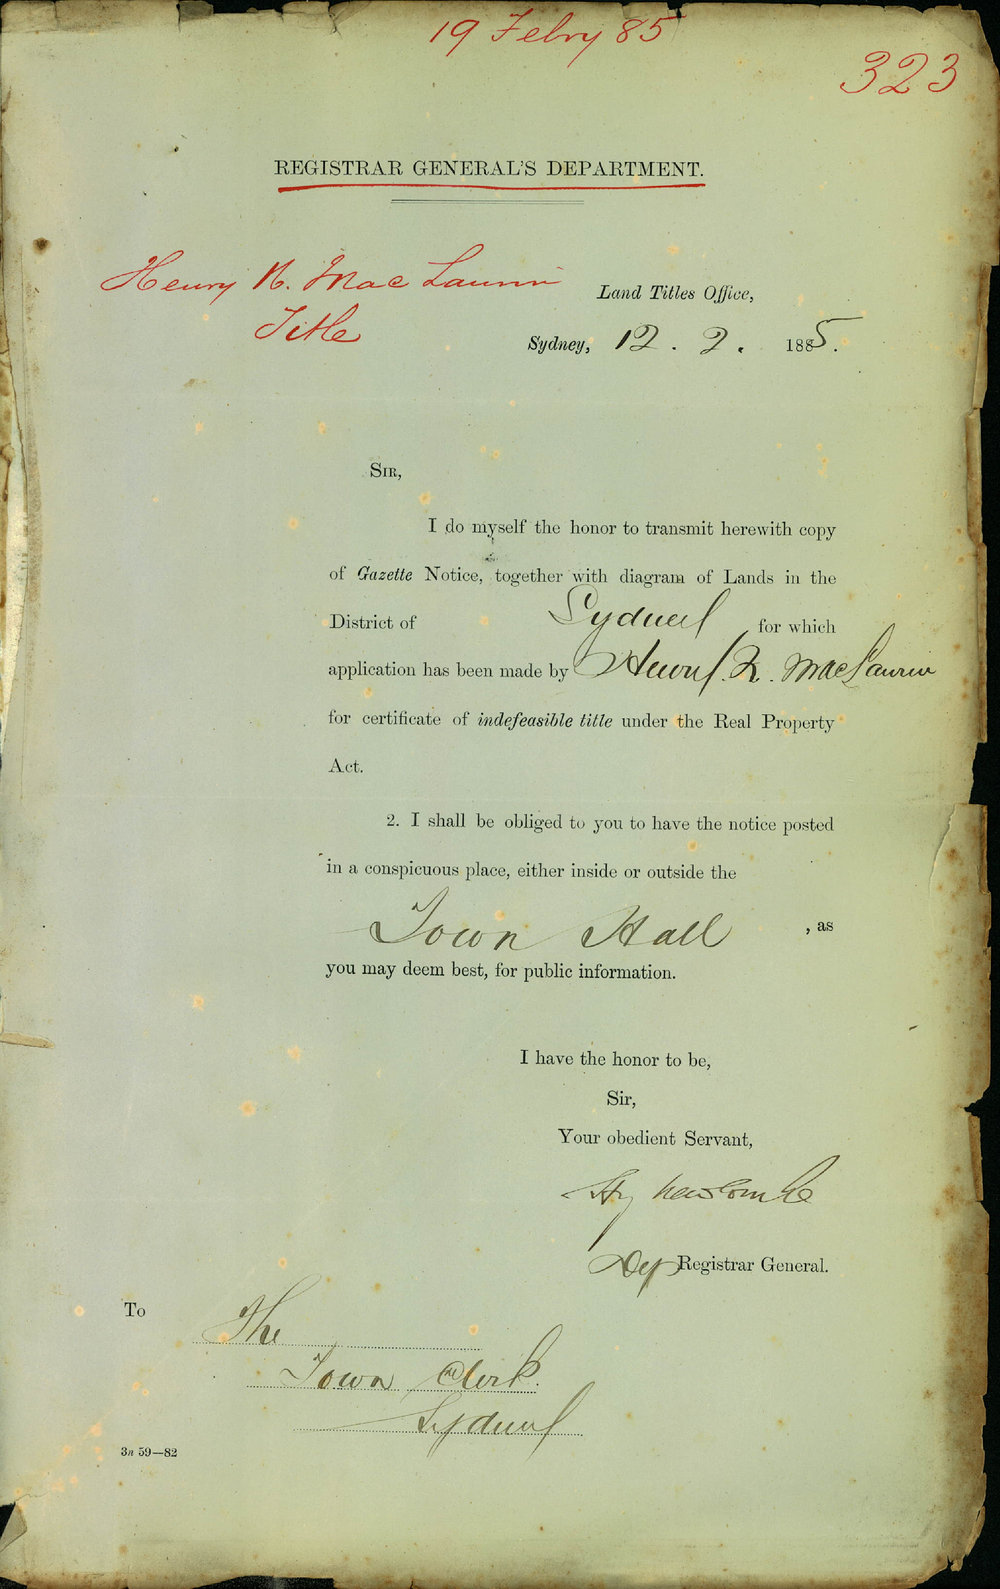 19 Febry 85
323
REGISTRAR GENERAL'S DEPARTMENT.
Henry N. MacLaurin
Title
Land Titles Office,
Sydney, 12 . 2 . 1885.
SIR,
I do myself the honor to transmit herewith copy
of Gazette Notice, together with diagram of Lands in the
District of Sydney for which
application has been made by Henry. N. MacLaurin
for certificate of indefeasible title under the Real Property
Act.
2. I shall be obliged to you to have the notice posted
in a conspicuous place, either inside or outside the
Town Hall , as
you may deem best, for public information.
I have the honor to be,
Sir,
Your obedient Servant,
Hy Newcombe
Dep Registrar General.
To
The
Town Clerk.
Sydney
3n 59—82